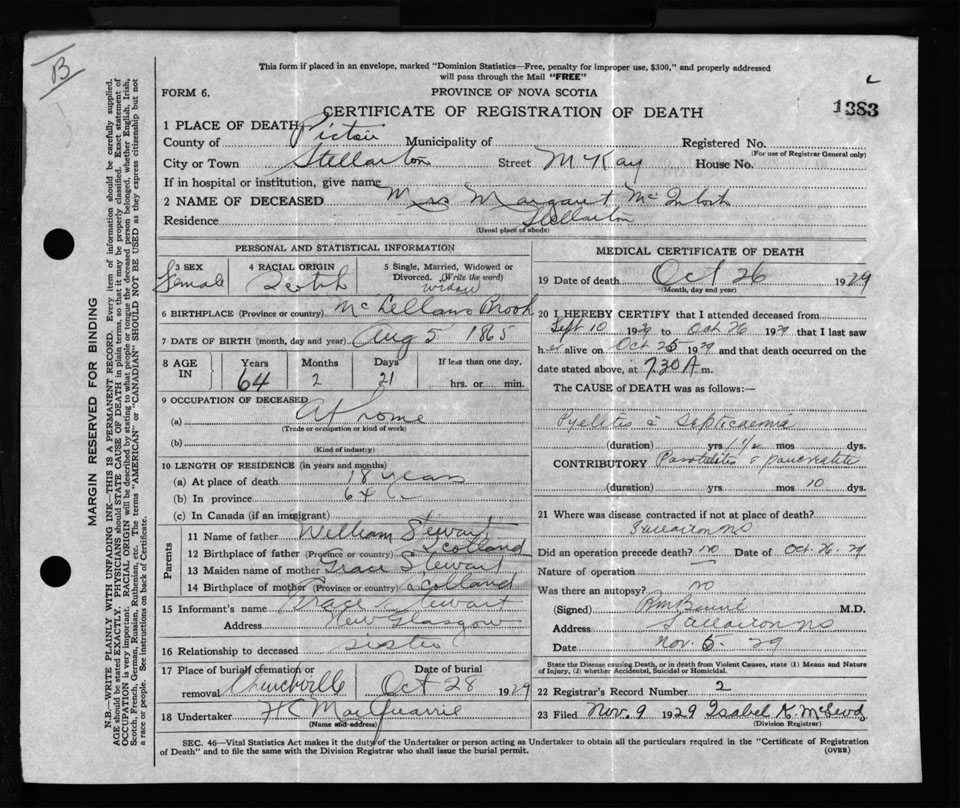 B
This form if placed in an envelope, marked "Dominion Statistics—Free, penalty for improper use, $300," and properly addressed
will pass through the Mail "FREE"
FORM 6.
PROVINCE OF NOVA SCOTIA
1383
CERTIFICATE OF REGISTRATION OF DEATH
1 PLACE OF DEATH
County of Pictou Municipality of Registered No.
(For use of Registrar General only)
City or Town Stellarton Street McKay House No.
If in hospital or institution, give name
2 NAME OF DECEASED Mrs Margaret McIntosh
Residence Stellarton
(Usual place of abode)
PERSONAL AND STATISTICAL INFORMATION
3 SEX Female
4 RACIAL ORIGIN Scotch
5 Single, Married, Widowed or Divorced. (Write the word) widow
6 BIRTHPLACE (Province or country) McLellans Brook
7 DATE OF BIRTH (month, day and year) Aug 5 1865
8 AGE IN Years 64 Months 2 Days 21 If less than one day, hrs. or min.
9 OCCUPATION OF DECEASED
(a) At home
(Trade or occupation or kind of work)
(b)
(Kind of industry)
10 LENGTH OF RESIDENCE (in years and months)
(a) At place of death 18 years
(b) In province 64
(c) In Canada (if an immigrant)
Parents
11 Name of father William Stewart
12 Birthplace of father (Province or country) Scotland
13 Maiden name of mother Grace Stewart
14 Birthplace of mother (Province or country) Scotland
15 Informant's name Grace Stewart
Address New Glasgow
16 Relationship to deceased sister
17 Place of burial cremation or removal Churchville
Date of burial Oct 28 1929
18 Undertaker H C MacQuarrie
(Name and address)
MEDICAL CERTIFICATE OF DEATH
19 Date of death Oct 26 1929
(Month, day and year)
20 I HEREBY CERTIFY that I attended deceased from
Sept 10 1929 to Oct 26 1929 that I last saw
her alive on Oct 25 1929 and that death occurred on the
date stated above, at 7.30 A m.
The CAUSE of DEATH was as follows:—
Pyelitis c Septicaemia
(duration) yrs 1 1/2 mos dys.
CONTRIBUTORY Parotiditis & pancreatitis
(duration) yrs mos 10 dys.
21 Where was disease contracted if not at place of death?
Stellarton NS
Did an operation precede death? no Date of Oct. 26. 29
Nature of operation
Was there an autopsy? no
(Signed) M.D.
Address Stellarton NS
Date Nov. 5- 29
State the Disease causing Death, or in death from Violent Causes, state (1) Means and Nature
of Injury, (2) whether Accidental, Suicidal or Homicidal.
22 Registrar's Record Number 2
23 Filed Nov. 9 1929 Isabel K. McLeod
(Division Registrar)
SEC. 46—Vital Statistics Act makes it the duty of the Undertaker or person acting as Undertaker to obtain all the particulars required in the "Certificate of Registration
of Death" and to file the same with the Division Registrar who shall issue the burial permit.
(OVER)
MARGIN RESERVED FOR BINDING
N.B.—WRITE PLAINLY WITH UNFADING INK—THIS IS A PERMANENT RECORD. Every item of information should be carefully supplied.
AGE should be stated EXACTLY. PHYSICIANS should STATE CAUSE OF DEATH in plain terms, so that it may be properly classified. Exact statement of
OCCUPATION is very important. RACIAL ORIGIN will be described by stating to what people or tongue the deceased person belonged, whether English, Irish,
Scotch, French, German, Russian, Ruthenian, etc. The terms "AMERICAN" or "CANADIAN" SHOULD NOT BE USED as they express citizenship but not
a race or people. See instructions on back of Certificate.